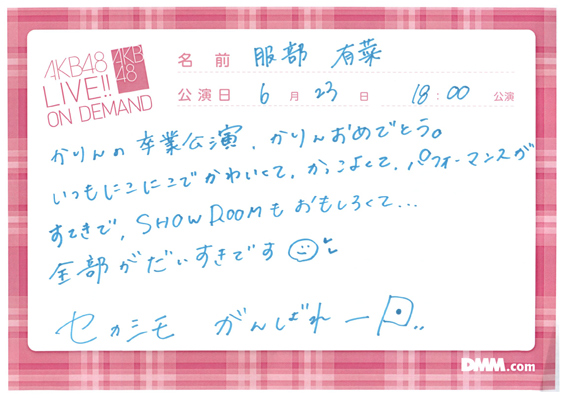 AKB48
LIVE!!
ON DEMAND
AKB
48
名前 服部 有菜
公演日 6月23日 18:00 公演
かりんの卒業公演、かりんおめでとう。
いつもにこにこでかわいくて、かっこよくて、パフォーマンスが
すてきで、SHOWROOMもおもしろくて...
全部がだいすきです
セカミモ がんばれー
DMM.com